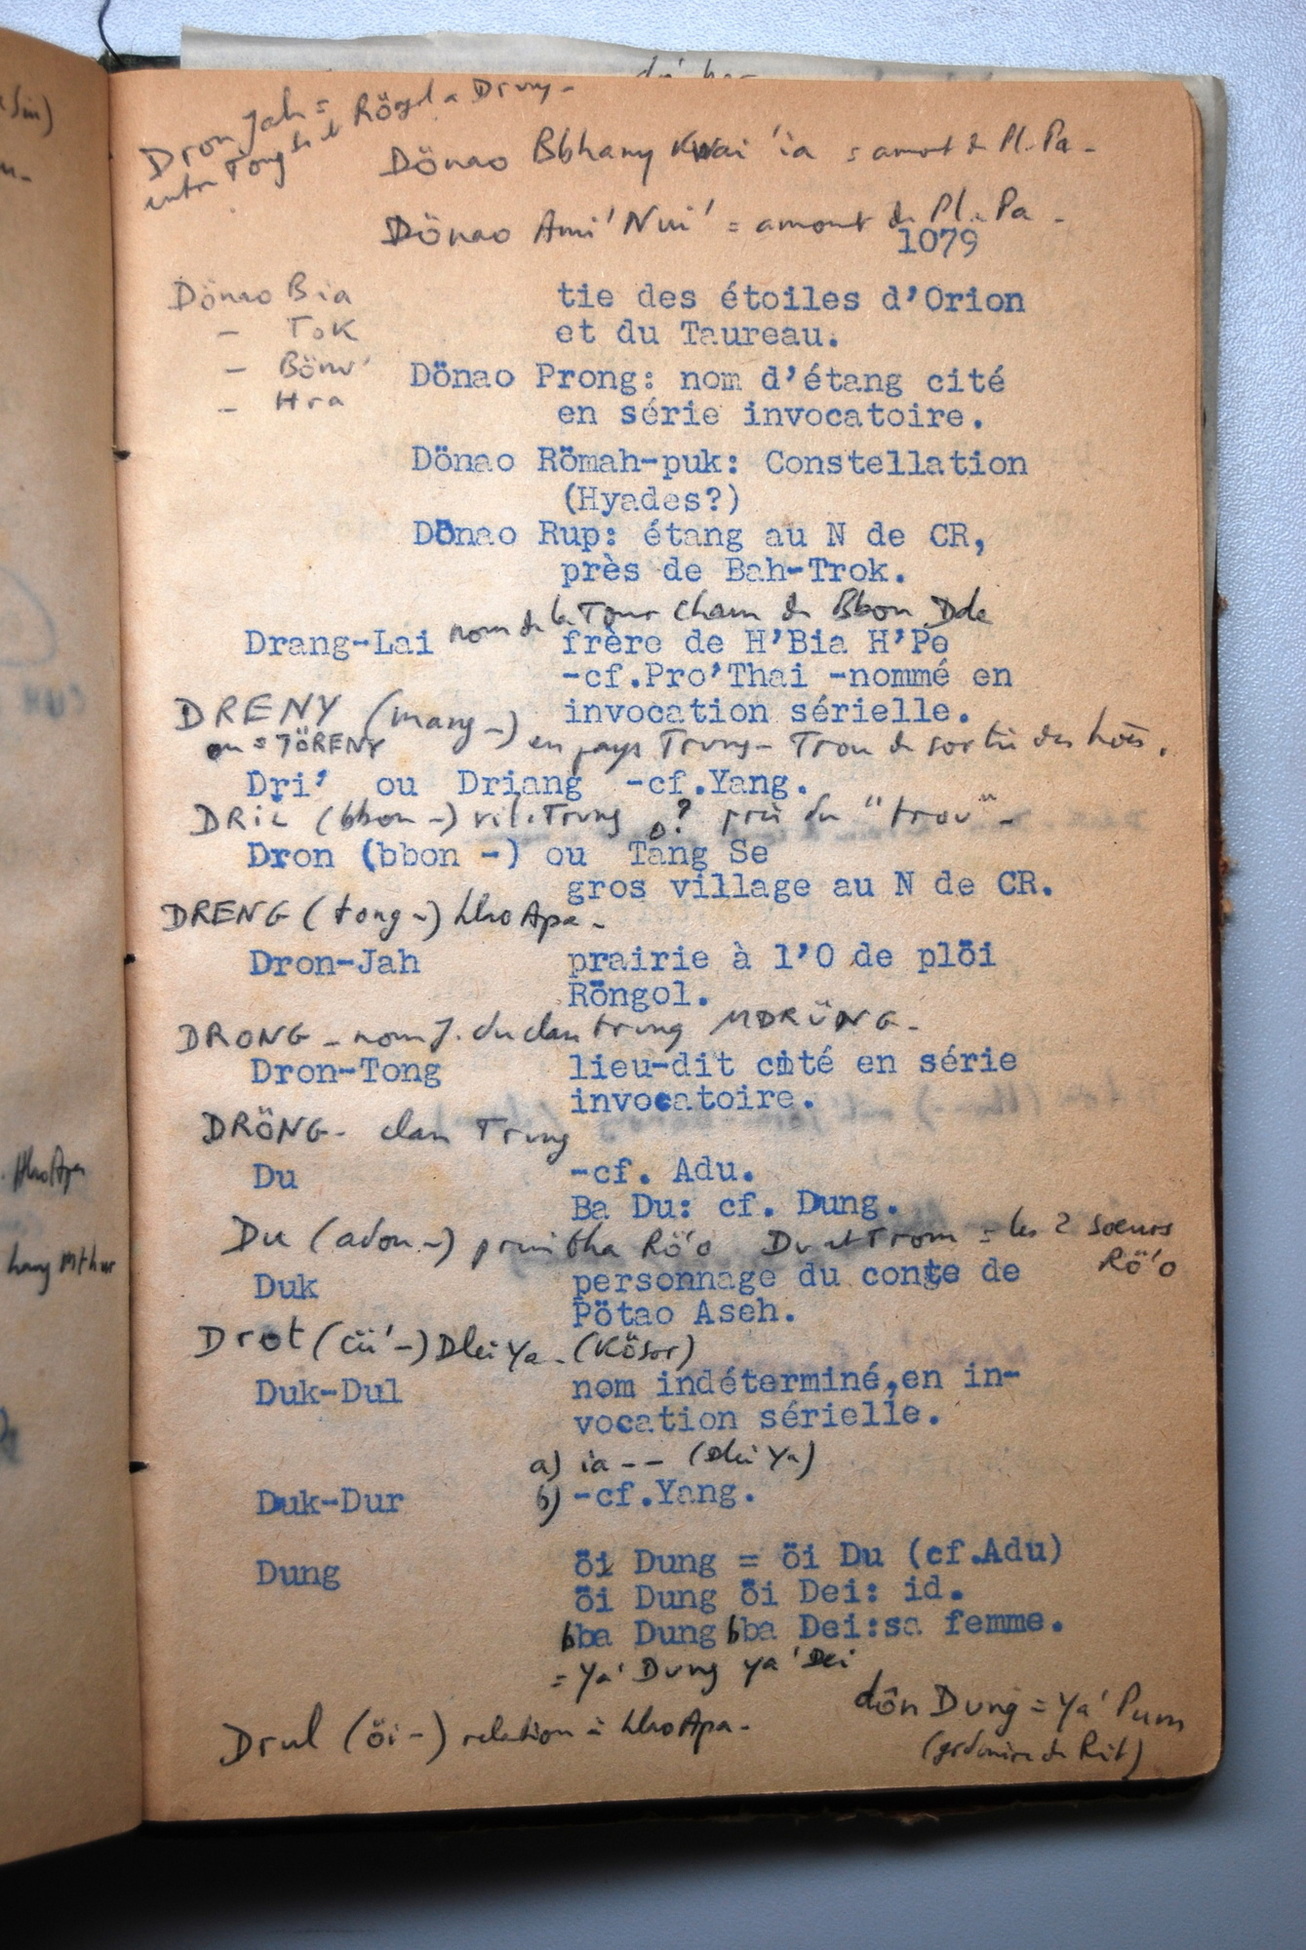 Dron Jah =
entre Tong
Dönao Bbhang Kwai 'ia = amont de Pl. Pa -
Dönao Ami' Nui' = amont de Pl. Pa -
1079
Dönao Bia
- Tok
- Hra
tie des étoiles d'Orion
et du Taureau.
Dönao Prong: nom d'étang cité
en série invocatoire.
Dönao Römah-puk: Constellation
(Hyades?)
Dönao Rup: étang au N de CR,
près de Bah-Trok.
nom de la Tour Cham de Bbon Dde
Drang-Lai frère de H'Bia H'Pe
-cf.Pro'Thai -nommé en
invocation sérielle.
DRENY (mang -) en pays Trung - Trou de sortie des
ou = TÖRENY
Dri' ou Driang -cf.Yang.
(bbon -) vil. Trung ? près du "trou" -
Dron (bbon -) ou Tang Se
gros village au N de CR.
DRENG (tong -) HhoApa -
Dron-Jah prairie à l'O de plöi
Röngol.
DRONG - nom J. du clan trung MDRÜNG -
Dron-Tong lieu-dit cité en série
invocatoire.
DRÖNG - clan Trung
Du -cf. Adu.
Ba Du: cf. Dung.
Du (adon -) Rö'o Du et Trom = les 2 soeurs
Rö'o
Duk personnage du conte de
Pötao Aseh.
Drot (cü' -) Dlei Ya - (Kösor)
Duk-Dul nom indéterminé,en in-
vocation sérielle.
a) ia -- (Dlei Ya)
Duk-Dur b) -cf.Yang.
Dung öi Dung = öi Du (cf.Adu)
öi Dung öi Dei: id.
bba Dung bba Dei:sa femme.
= Ya' Dung ya' Dei
dôn Dung = Ya' Pum
Drul (öi -) relation à HhoApa -